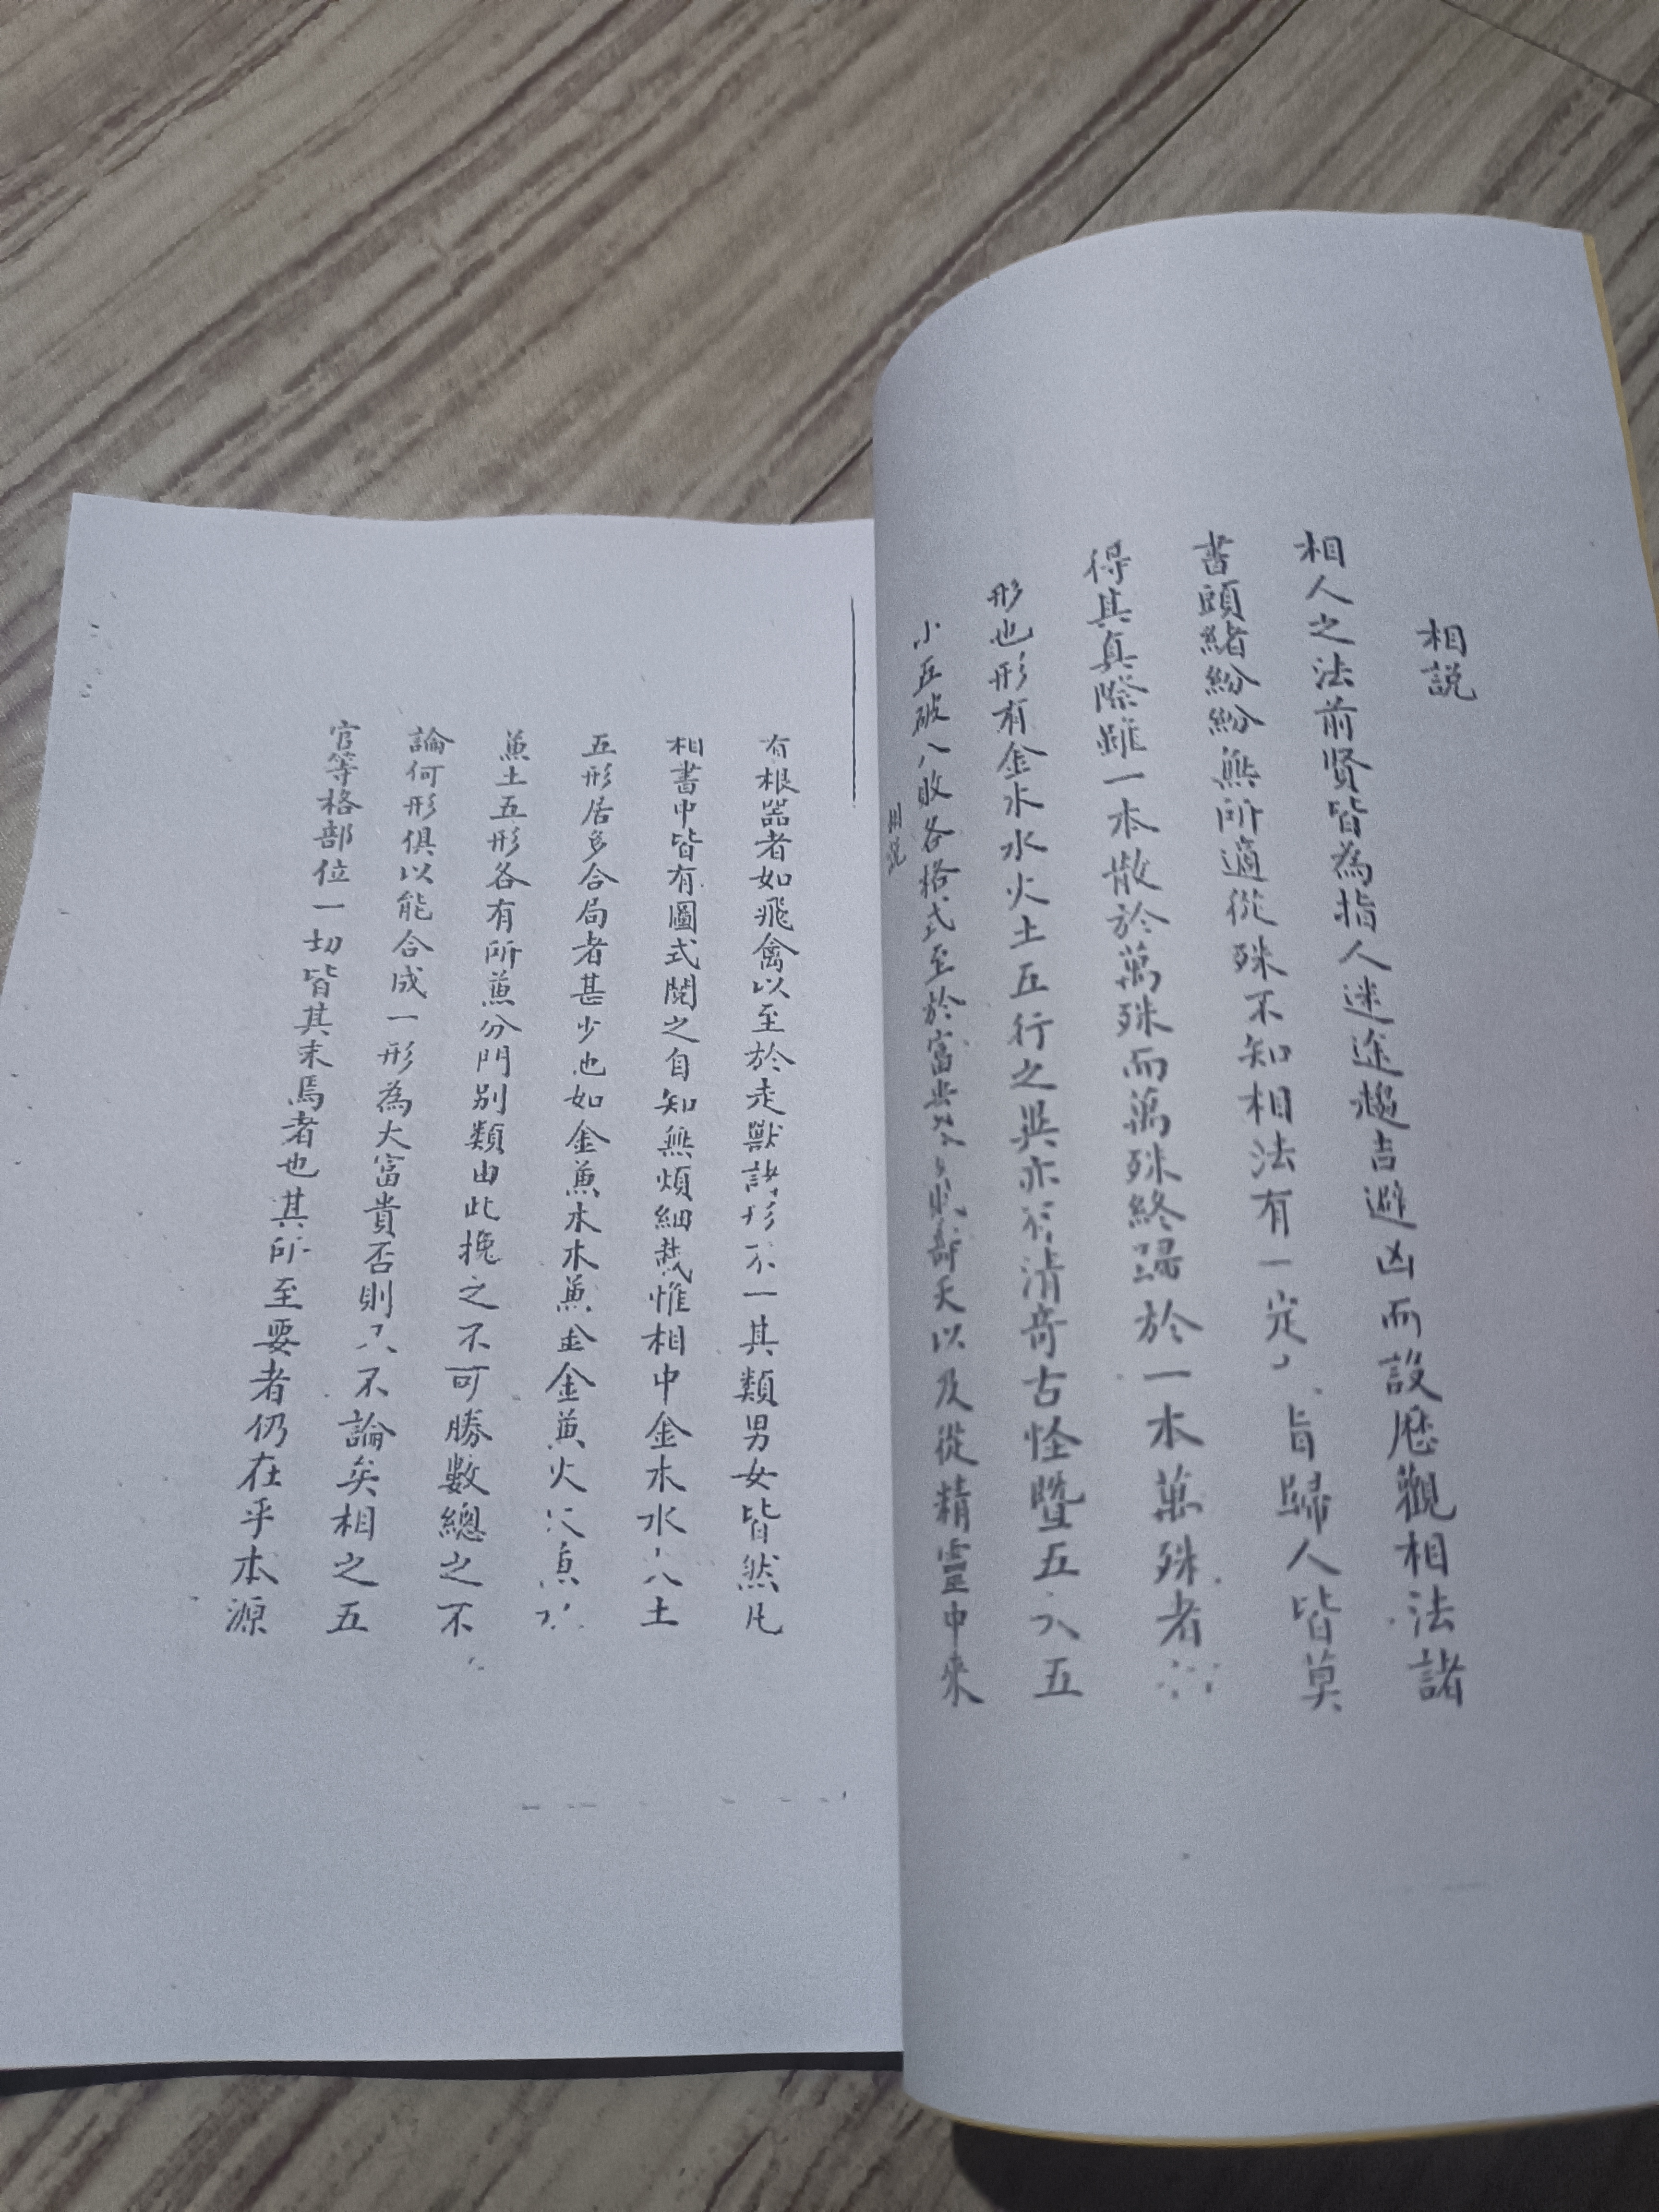 相説
相人之法前賢皆為指人迷途趨吉避凶而設歷觀相法諸
書頭緒紛紛無所適從殊不知相法有一定 旨歸人皆莫
得其真際雖一本散於萬殊而萬殊終歸於一本萬殊者
形也形有金木水火土五行之異亦有清奇古怪暨五六五
小五破八敗各格式至於富貴 壽夭以及從精靈中來
相説
有根器者如飛禽以至於走獸諸形不一其類男女皆然凡
相書中皆有圖式閱之自知無煩細哉惟相中金木水火土
五形居多合局者甚少也如金蕉木木蕉金金蕉火火蕉
蕉土五形各有所蕉分門別類由此挽之不可勝數總之不
論何形俱以能合成一形為大富貴否則 不論矣相之五
官等格部位一切皆其末焉者也其所至要者仍在乎本源